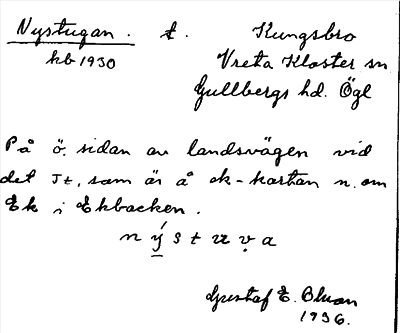 Nystugan. t. Kungsbro
kb 1930 Vreta Kloster sn
Gullbergs hd. Ögl
På ö. sidan av landsvägen vid
det Tt, som är å ek-kartan n. om
Ek i Ekbacken.
n ý s t u v a
Gustaf E. Bluon
1936.